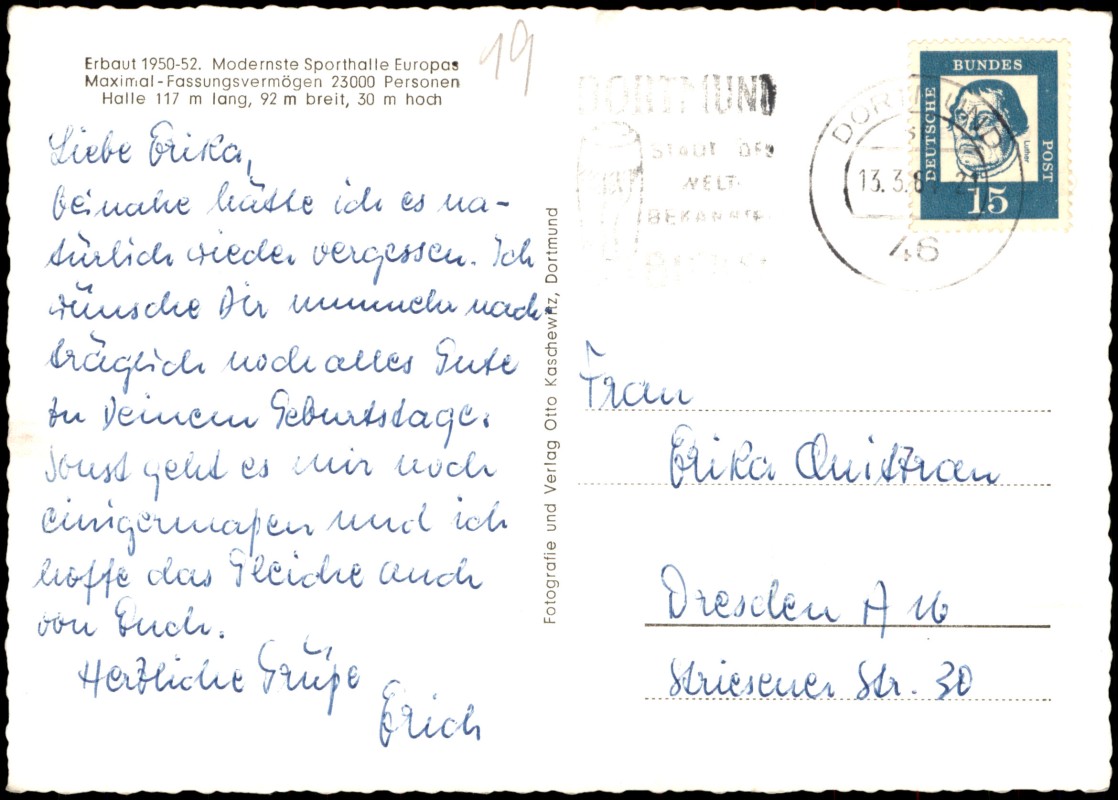 19
Erbaut 1950-52. Modernste Sporthalle Europas
Maximal-Fassungsvermögen 23000 Personen
Halle 117 m lang, 92 m breit, 30 m hoch
Liebe Erika,
beinahe hätte ich es na-
türlich wieder vergessen. Ich
wünsche Dir nunmehr nach-
träglich noch alles Gute
zu Deinem Geburtstage.
Sonst geht es mir noch
einigermaßen und ich
hoffe das Gleiche auch
von Euch.
Herzliche Grüße
Erich
Fotografie und Verlag Otto Kaschewitz, Dortmund
DORTMUND
STADT DER
WELT-
BEKANNTEN
BIERE
DORTMUND
13.3.6
46
DEUTSCHE
BUNDES
POST
Luther
15
Frau
Erika Quitzrau
Dresden A 16
Striesener Str. 30